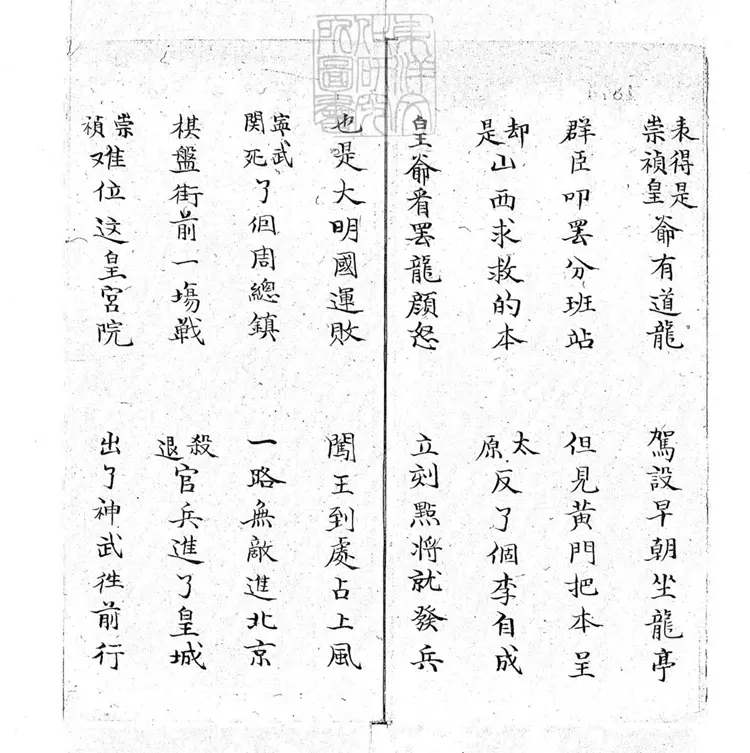 表得是崇禎皇爺有道龍　駕設早朝坐龍亭
群臣叩罢分班站　但見黃門把本呈
却是山西求救的本　太原反了個李自成
皇爺看罢龍顔怒　立刻點將就發兵
也是大明國運敗　闖王到處占上風
寧武関死了個周總鎮　一路無敵進北京
棋盤街前一場戰　殺退官兵進了皇城
崇禎难位这皇宮院　出了神武徃前行
東洋文化研究所圖書